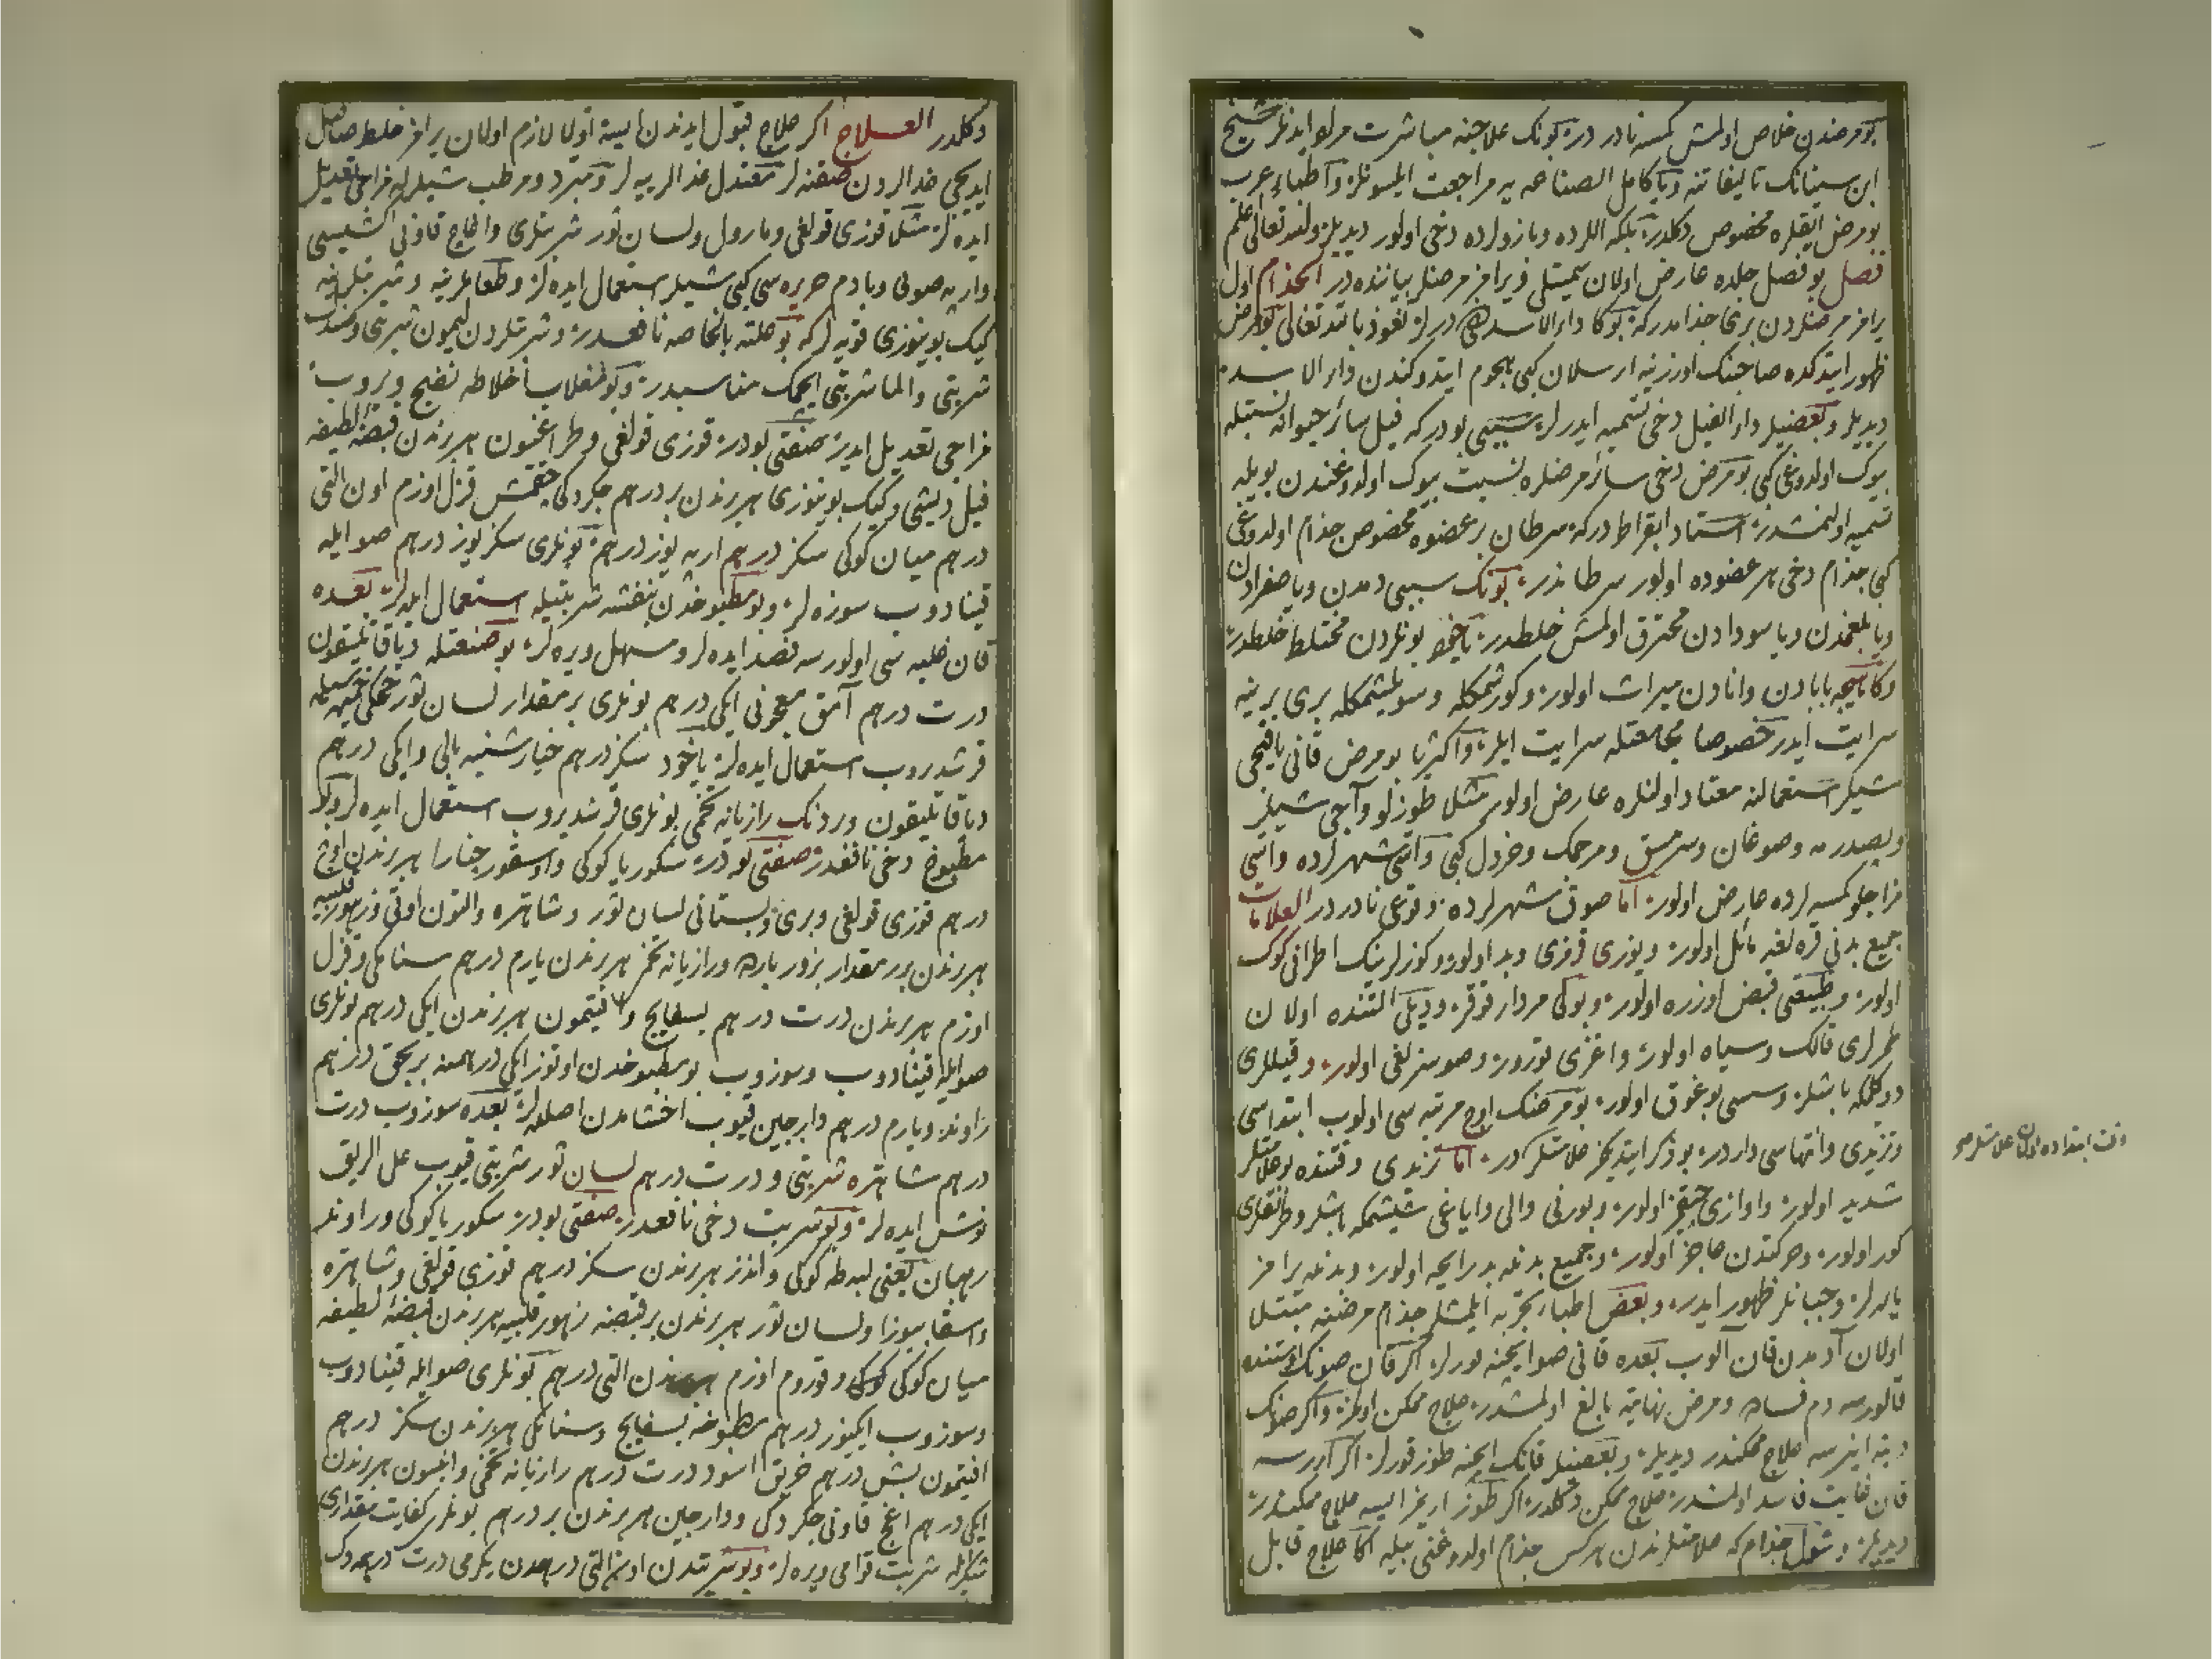 بو مرضدن خلاص اولمش كمسه نادر در بونك علاجنه مباشرت مراد ايدنلر شيخ
ابن سينانك تاليفاتنه و يا كامل الصناعه يه مراجعت ايلسونلر و اطباء عرب
بو مرض ايقلره مخصوص دكلدر بلكه اللرده و بازولرده دخى اولور ديديلر والله تعالى اعلم
فصل بو فصل جلده عارض اولان سميتلى و يرامز مرضلر بياننده در الجذام اول
يرامز مرضلردن برى جذامدر كه بوكا داء الاسد دخى ديرلر نعوذ بالله تعالى بو مرض
ظهور ايتدكده صاحبنك اوزرينه ارسلان كبى هجوم ايتدوكندن داء الاسد
ديديلر و بعضيلر داء الفيل دخى تسميه ايدرلر سببى بودر كه فيل سائر حيوانه نسبتله
بيوك اولدوغى كبى بو مرض دخى سائر مرضلره نسبت بيوك اولدوغندن بويله
تسميه اولنمشدر استاد ابقراط دركه سرطان بر عضوه مخصوص جذام اولدوغى
كبى جذام دخى هر عضوده اولور سرطاندر بونك سببى دمدن و يا صفرادن
و يا بلغمدن و يا سودادن محترق اولمش خلطدر ياخود بونلردن مختلط خلطدر
وكاهيجه بابادن و انادن ميراث اولور و كورشمكله و سويلشمكله برى برينه
سرايت ايدر خصوصا مجامعتله سرايت ايلر و اكثريا بو مرض قانى ياقيجى
شيلر استعمالنه معتاد اولنلره عارض اولور مثلا طوزلو و آجى شيلر
و بصدرمه و صوغان و سرمسق و مرجمك و خردل كبى و اسى شهرلرده و اسى
مزاجلو كمسه لرده عارض اولور اما صوق شهرلرده وقوعى نادر در العلامات
جميع بدنى قره لغه مائل اولور و يوزى قزى و بد اولور و كوزلرينك اطرافى كوك
اولور و طبيعتى قبض اوزره اولور و بوكى مردار قوقر و ديلى التنده اولان
طمرلرى قالك و سياه اولور و اغزى قورور و صوسزلغى اولور و قيللرى
دوكلمكه باشلر و سسى بوغوق اولور بو مرضنك اوچ مرتبه سى اولوب ابتداسى
و تزيدى و انتهاسى واردر بو ذكر ايتديكمز علامتلر در اما تزيدى وقتنده بو علامتلر
شديد اولور و اوازى چيقمز اولور و بورنى و الى و اياغى شيشمكه باشلر و طرنقلرى
كور اولور و حركتدن عاجز اولور و جميع بدنه بد رايحه اولور و بدنه يرامز
يارلر و چبانلر ظهور ايدر و بعض اطباء تجربه ايلمشلر جذام مرضنه مبتلا
اولان آدمدن قان آلوب بعده قانى صو ايچنه قورلر اكر قان صونك اوستنده
قالورسه دم فساده و مرض نهايته بالغ اولمشدر علاج ممكن اولمز و اكر صونك
دبنه اينرسه علاج ممكندر ديديلر و بعضيلر قانك ايچنه طوز قورلر اكر اررسه
قان غايت فاسد اولمشدر علاج ممكن دكلدر اكر طوز اريمز ايسه علاج ممكندر
ديديلر و شول جذام كه علامتلرندن هركس جذام اولدوغنى بيله اكا علاج قابل
وقت ابتداده اولان علامتلر
دكلدر العلاج اكر علاج قبول ايدندن ايسه اولا لازم اولان يرامز خلط حاصل
ايديجى غدالردن صقنه لر معتدل غدالر ييه لر و مبرد و مرطب شيلرله مزاجى تعديل
ايده لر مثلا قوزى قولغى و مارول و لسان ثور شربتلرى و اغاج قاونى اكشيسى
و ارپه صوى و بادم حريره سى كبى شيلر استعمال ايده لر و طعاملرينه و شربتلرينه
كيك بوينوزى قويه لر كه بو علته بالخاصه نافعدر و شربتلردن ليمون شربتى و صندل
شربتى و الما شربتى ايچمك مناسبدر و بو مغلاب اخلاطه نضج ويروب
مزاجى تعديل ايدر صفتى بودر قوزى قولغى و طراغيون هر برندن قبضۀ لطيفه
فيل ديشى و كيك بوينوزى هر برندن بر درهم چكردكى چقمش قزل اوزم اون التى
درهم ميان كوكى سكز درهم ارپه يوز درهم بونلرى سكز يوز درهم صو ايله
قينادوب سوزه لر و بو مطبوخدن بنفشه شربتيله استعمال ايده لر بعده
قان غلبه سى اولورسه فصد ايده لر و مسهل ويره لر بو صنعتله دياقاتليقون
درت درهم آمق معجونى ايكى درهم بونلرى بر مقدار لسان ثور
قرشدروب استعمال ايده لر ياخود سكز درهم خيارشنبه بالى و ايكى درهم
دياقاتليقون و رازيانه تخمى بونلرى قرشدروب استعمال ايده لر و بو
مطبوخ دخى نافعدر صفتى بودر سقورپا كوكى و اوسقورجنارا هر برندن اوچ
درهم قوزى قولغى و برى و بستانى لسان ثور و شاهتره و التون اوتى و زهور قلبيه
هر برندن برر مقدار بزور بارده و رازيانه تخم هر برندن يارم درهم سنامكى و قزل
اوزم هر برندن درت درهم بسفايج و افتيمون هر برندن ايكى درهم بونلرى
صو ايله قينادوب و سوزوب بو مطبوخدن اوتوز ايكى درهمنه بر بچق درهم
راوند و يارم درهم دارچين قيوب اخشامدن اصلده لر بعده سوزوب درت
درهم شاهتره شربتى و درت درهم لسان ثور شربتى قيوب على الريق
نوش ايده لر و بو شربت دخى نافعدر صفتى بودر سقورپا كوكى و راوند
رهبان يعنى لبطه كوكى و اندز هر برندن سكز درهم قوزى قولغى و شاهتره
و اسقابيوزا و لسان ثور هر برندن بر قبضه زهور قلبيه هر برندن قبضۀ لطيفه
ميان كوكى و قوروم اوزم هر برندن التى درهم بونلرى صو ايله قينادوب
و سوزوب ايكيوز درهم مطبوخه بسفايج و سنامكى هر برندن سكز درهم
افتيمون بش درهم خربق اسود درت درهم رازيانه تخمى و انيسون هر برندن
ايكى درهم اغاج قاونى چكردكى و دارچين هر برندن بر درهم بونلرى كفايت مقدارى
شكرله شربت قوامى ويره لر و بو شربتدن اون التى درهمدن يكرمى درت درهمه دك